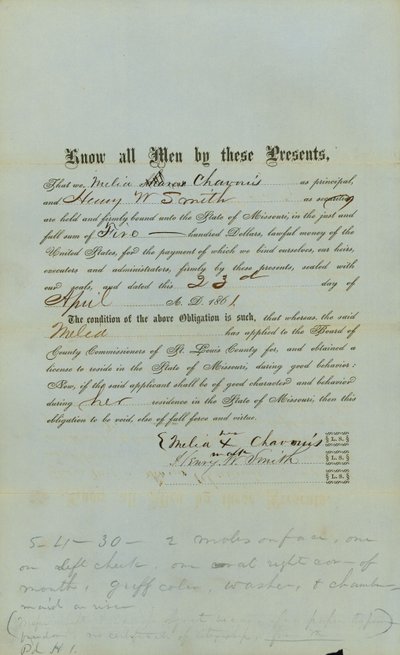 Know all Men by these Presents,
That we, Melia Chavouis as principal,
and Henry W Smith as security
are held and firmly bound unto the State of Missouri, in the just and
full sum of Five — hundred Dollars, lawful money of the
United States, for the payment of which we bind ourselves, our heirs,
executors and administrators, firmly by these presents, sealed with
our seals, and dated this 23d day of
April A. D. 1861.
The condition of the above Obligation is such, that whereas, the said
Melia has applied to the Board of
County Commissioners of St. Louis County for, and obtained a
license to reside in the State of Missouri, during good behavior:
Now, if the said applicant shall be of good character and behavior
during her residence in the State of Missouri, then this
obligation to be void, else of full force and virtue.
her
Emelia X Chavouis L. S.
mark
Henry W. Smith L. S.
L. S.
5-4-30- 2 moles on face, one
on left cheek, one right cor- of
mouth, griff color, washer, & chamber
maid
Pd H 1.